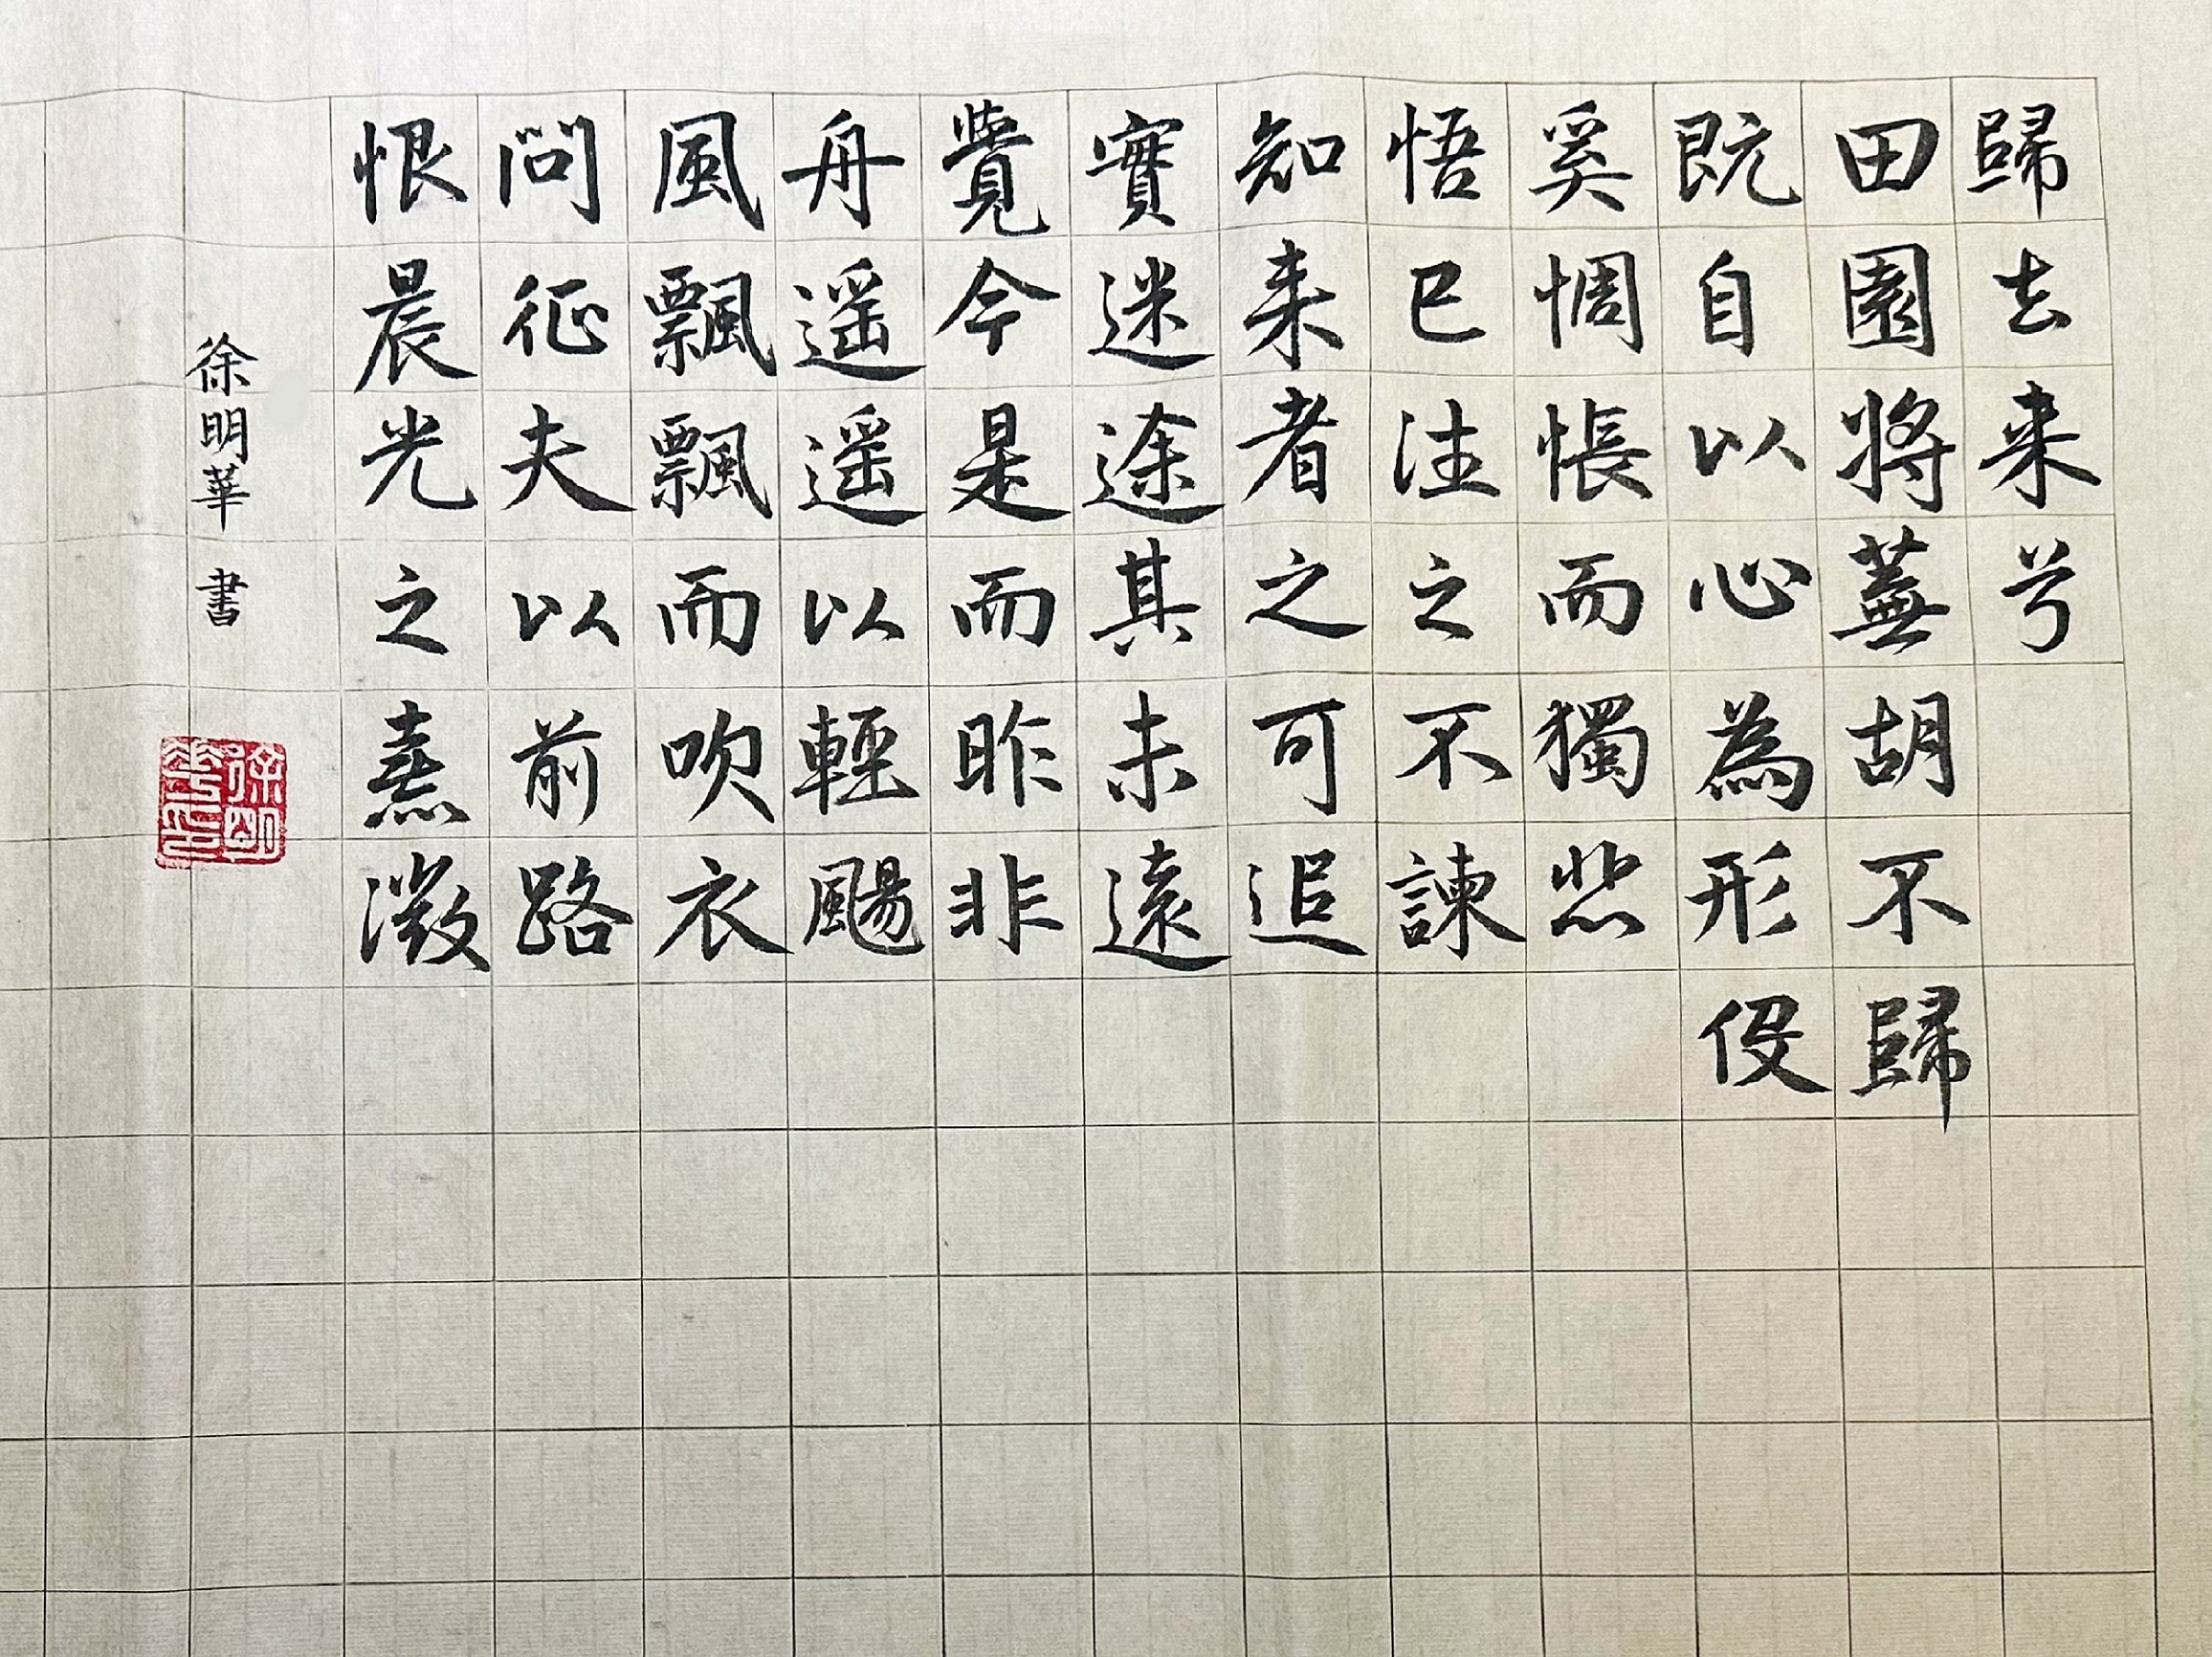 歸去来兮
田園將蕪胡不歸
既自以心為形役
奚惆悵而獨悲
悟已往之不諫
知来者之可追
實迷途其未遠
覺今是而昨非
舟遥遥以輕颺
風飄飄而吹衣
問征夫以前路
恨晨光之熹微
徐明華書
徐明華印